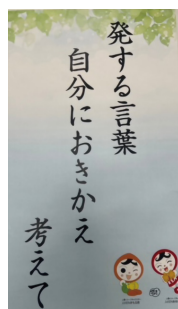 発する言葉
自分におきかえ
考えて